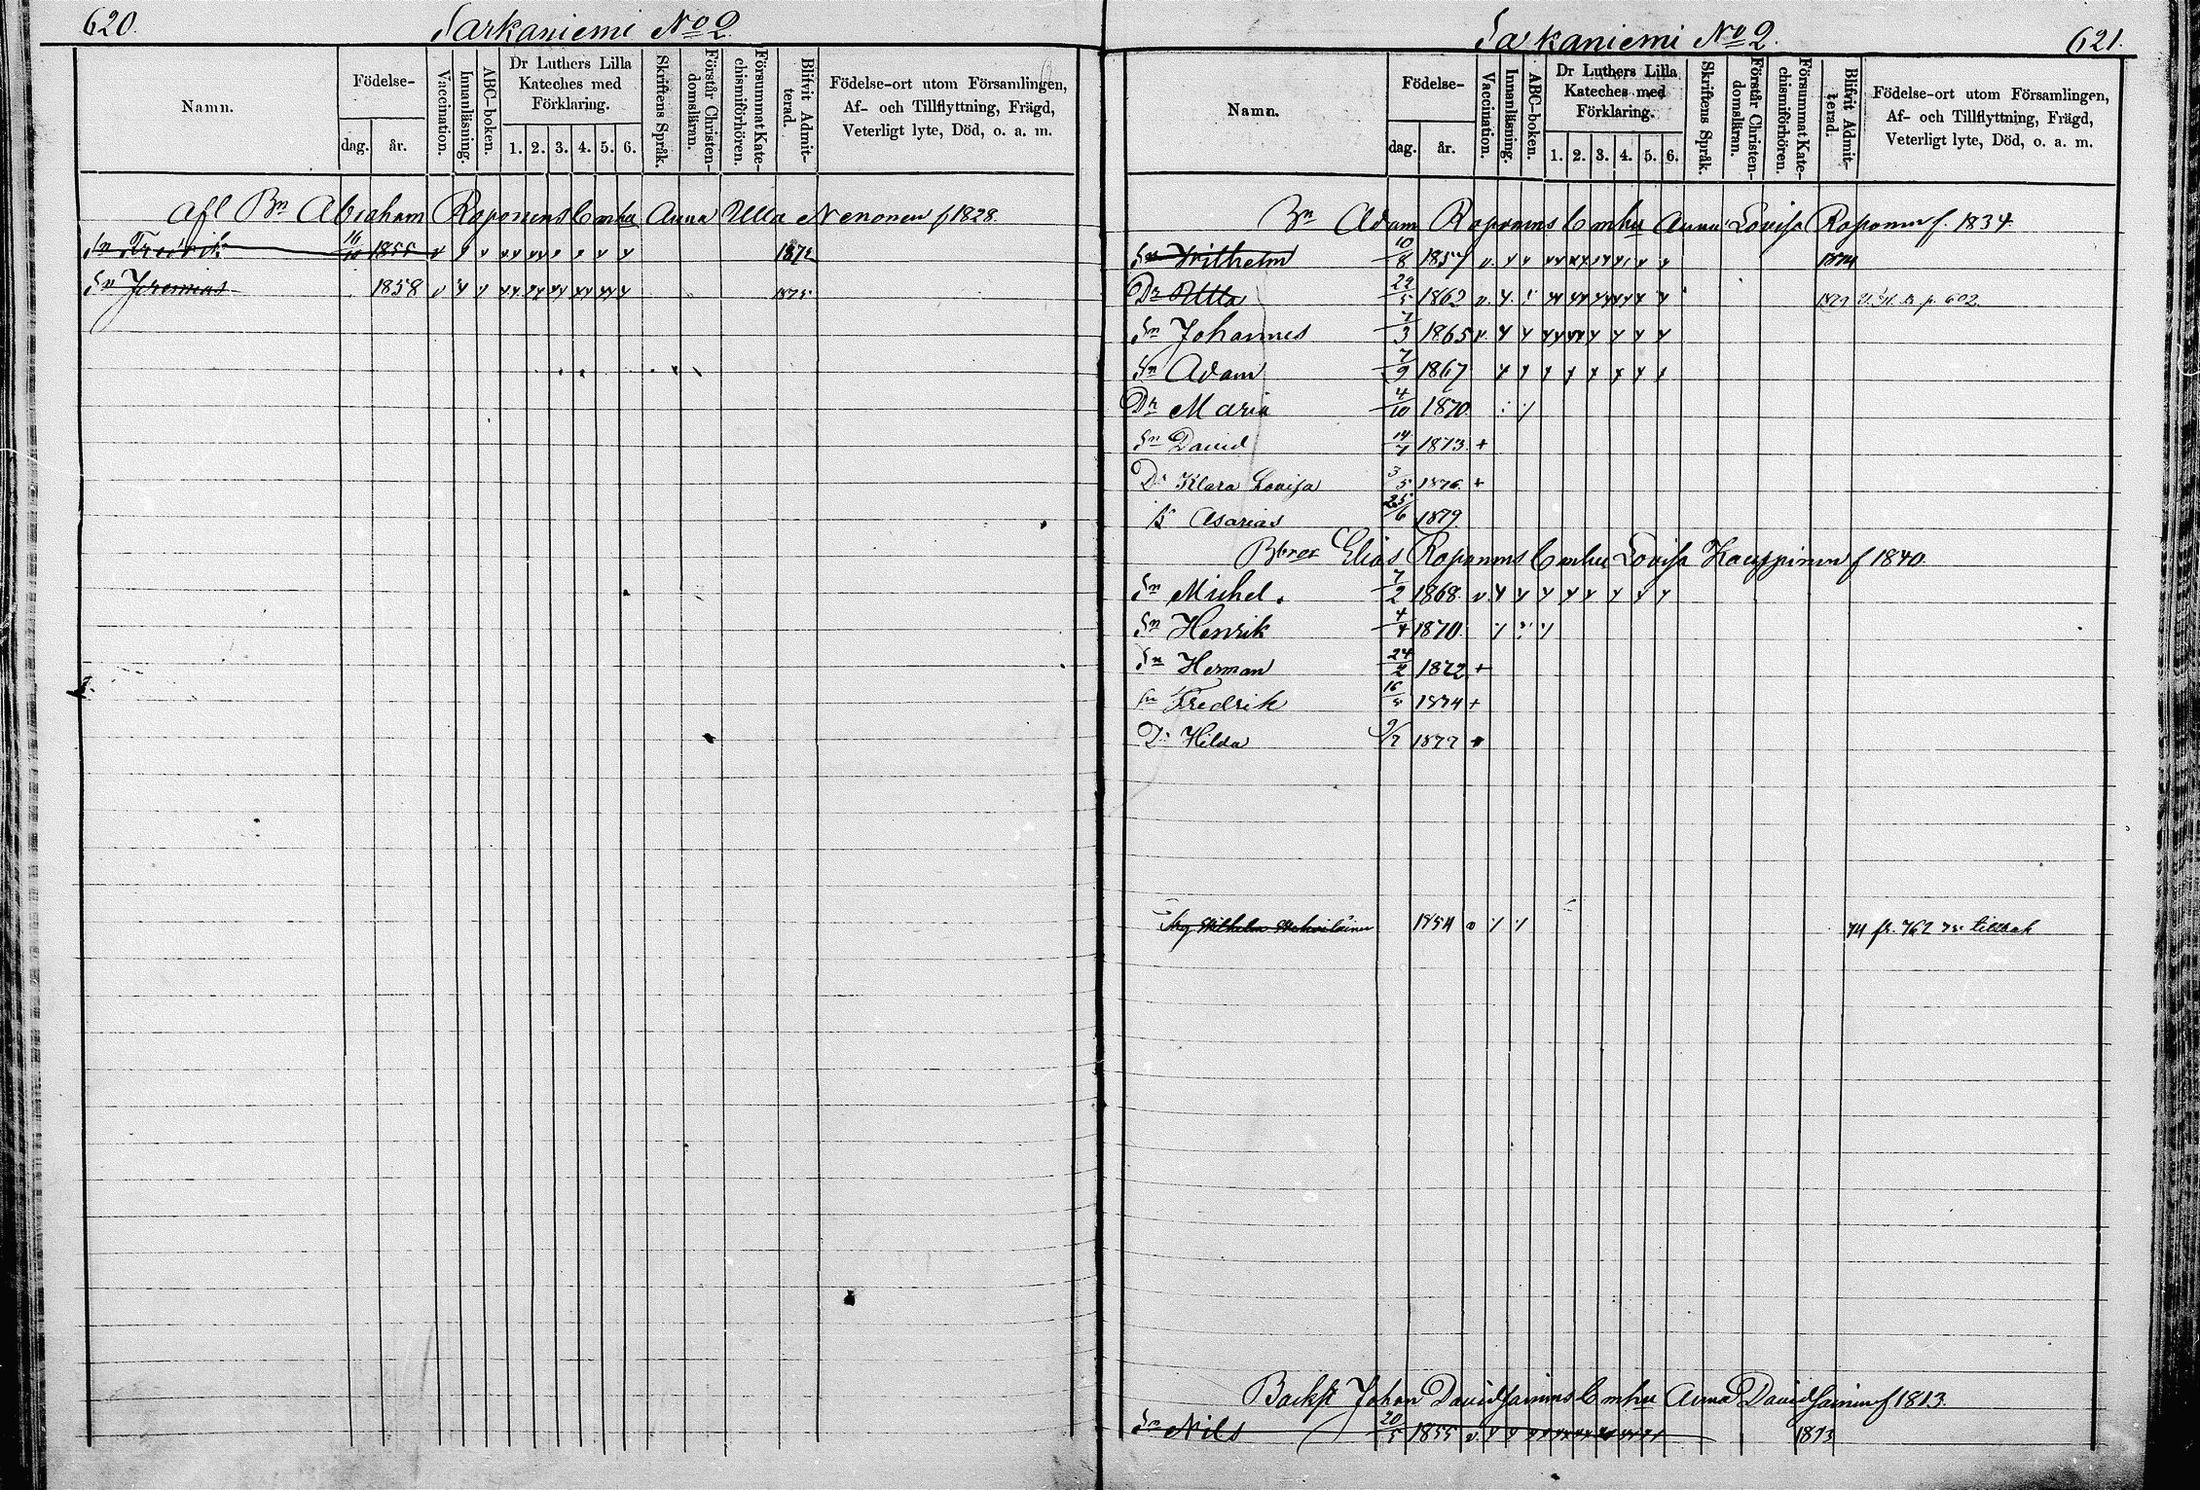 620.
Sarkaniemi No 2.
Namn.
Födelse-
dag.
år.
Vaccination.
Innanläsning.
ABC-boken.
Dr Luthers Lilla
Kateches med
Förklaring.
1. 2. 3. 4. 5. 6.
Skriftens Språk.
Förstår Christen-
domsläran.
Försummat Kate-
chismiförhören.
Blifvit Admit-
terad.
Födelse-ort utom Församlingen,
Af- och Tillflyttning, Frägd,
Veterligt lyte, Död, o. a. m.
Afl Bn Abraham Roponens Enka Anna Ulla Nenonen f 1828.
Sn Fredrik 16/10 1855 1872
Sn Jeremias 1858 1875
Sarkaniemi No 2.
621.
Namn.
Födelse-
dag.
år.
Vaccination.
Innanläsning.
ABC-boken.
Dr Luthers Lilla
Kateches med
Förklaring.
1. 2. 3. 4. 5. 6.
Skriftens Språk.
Förstår Christen-
domsläran.
Försummat Kate-
chismiförhören.
Blifvit Admit-
terad.
Födelse-ort utom Församlingen,
Af- och Tillflyttning, Frägd,
Veterligt lyte, Död, o. a. m.
Bn Adam Roponens hu Anna Lovisa Roponen f. 1834.
Sn Wilhelm 10/8 1857 1874
Dr Ulla 22/5 1862 p. 602
Sn Johannes 7/3 1865
Sn Adam 7/9 1867
Dr Maria 4/10 1870
Sn David 14/7 1873 +
Dr Klara Lovisa 3/5 1876 +
Asarias 25/6 1879
Elias Roponens hu Lovisa Kauppinen f 1840.
Sn Michel 7/2 1868
Sn Henrik 4/4 1870
Sn Herman 24/2 1872 +
Sn Fredrik 16/8 1874 +
Dr Hilda 9/7 1877
Wilhelm 1854 74 fr. 762 75 tillbak
Johan Davidsainens hu Anna Davidsainen f 1813.
Sn Nils 20/5 1855 1873